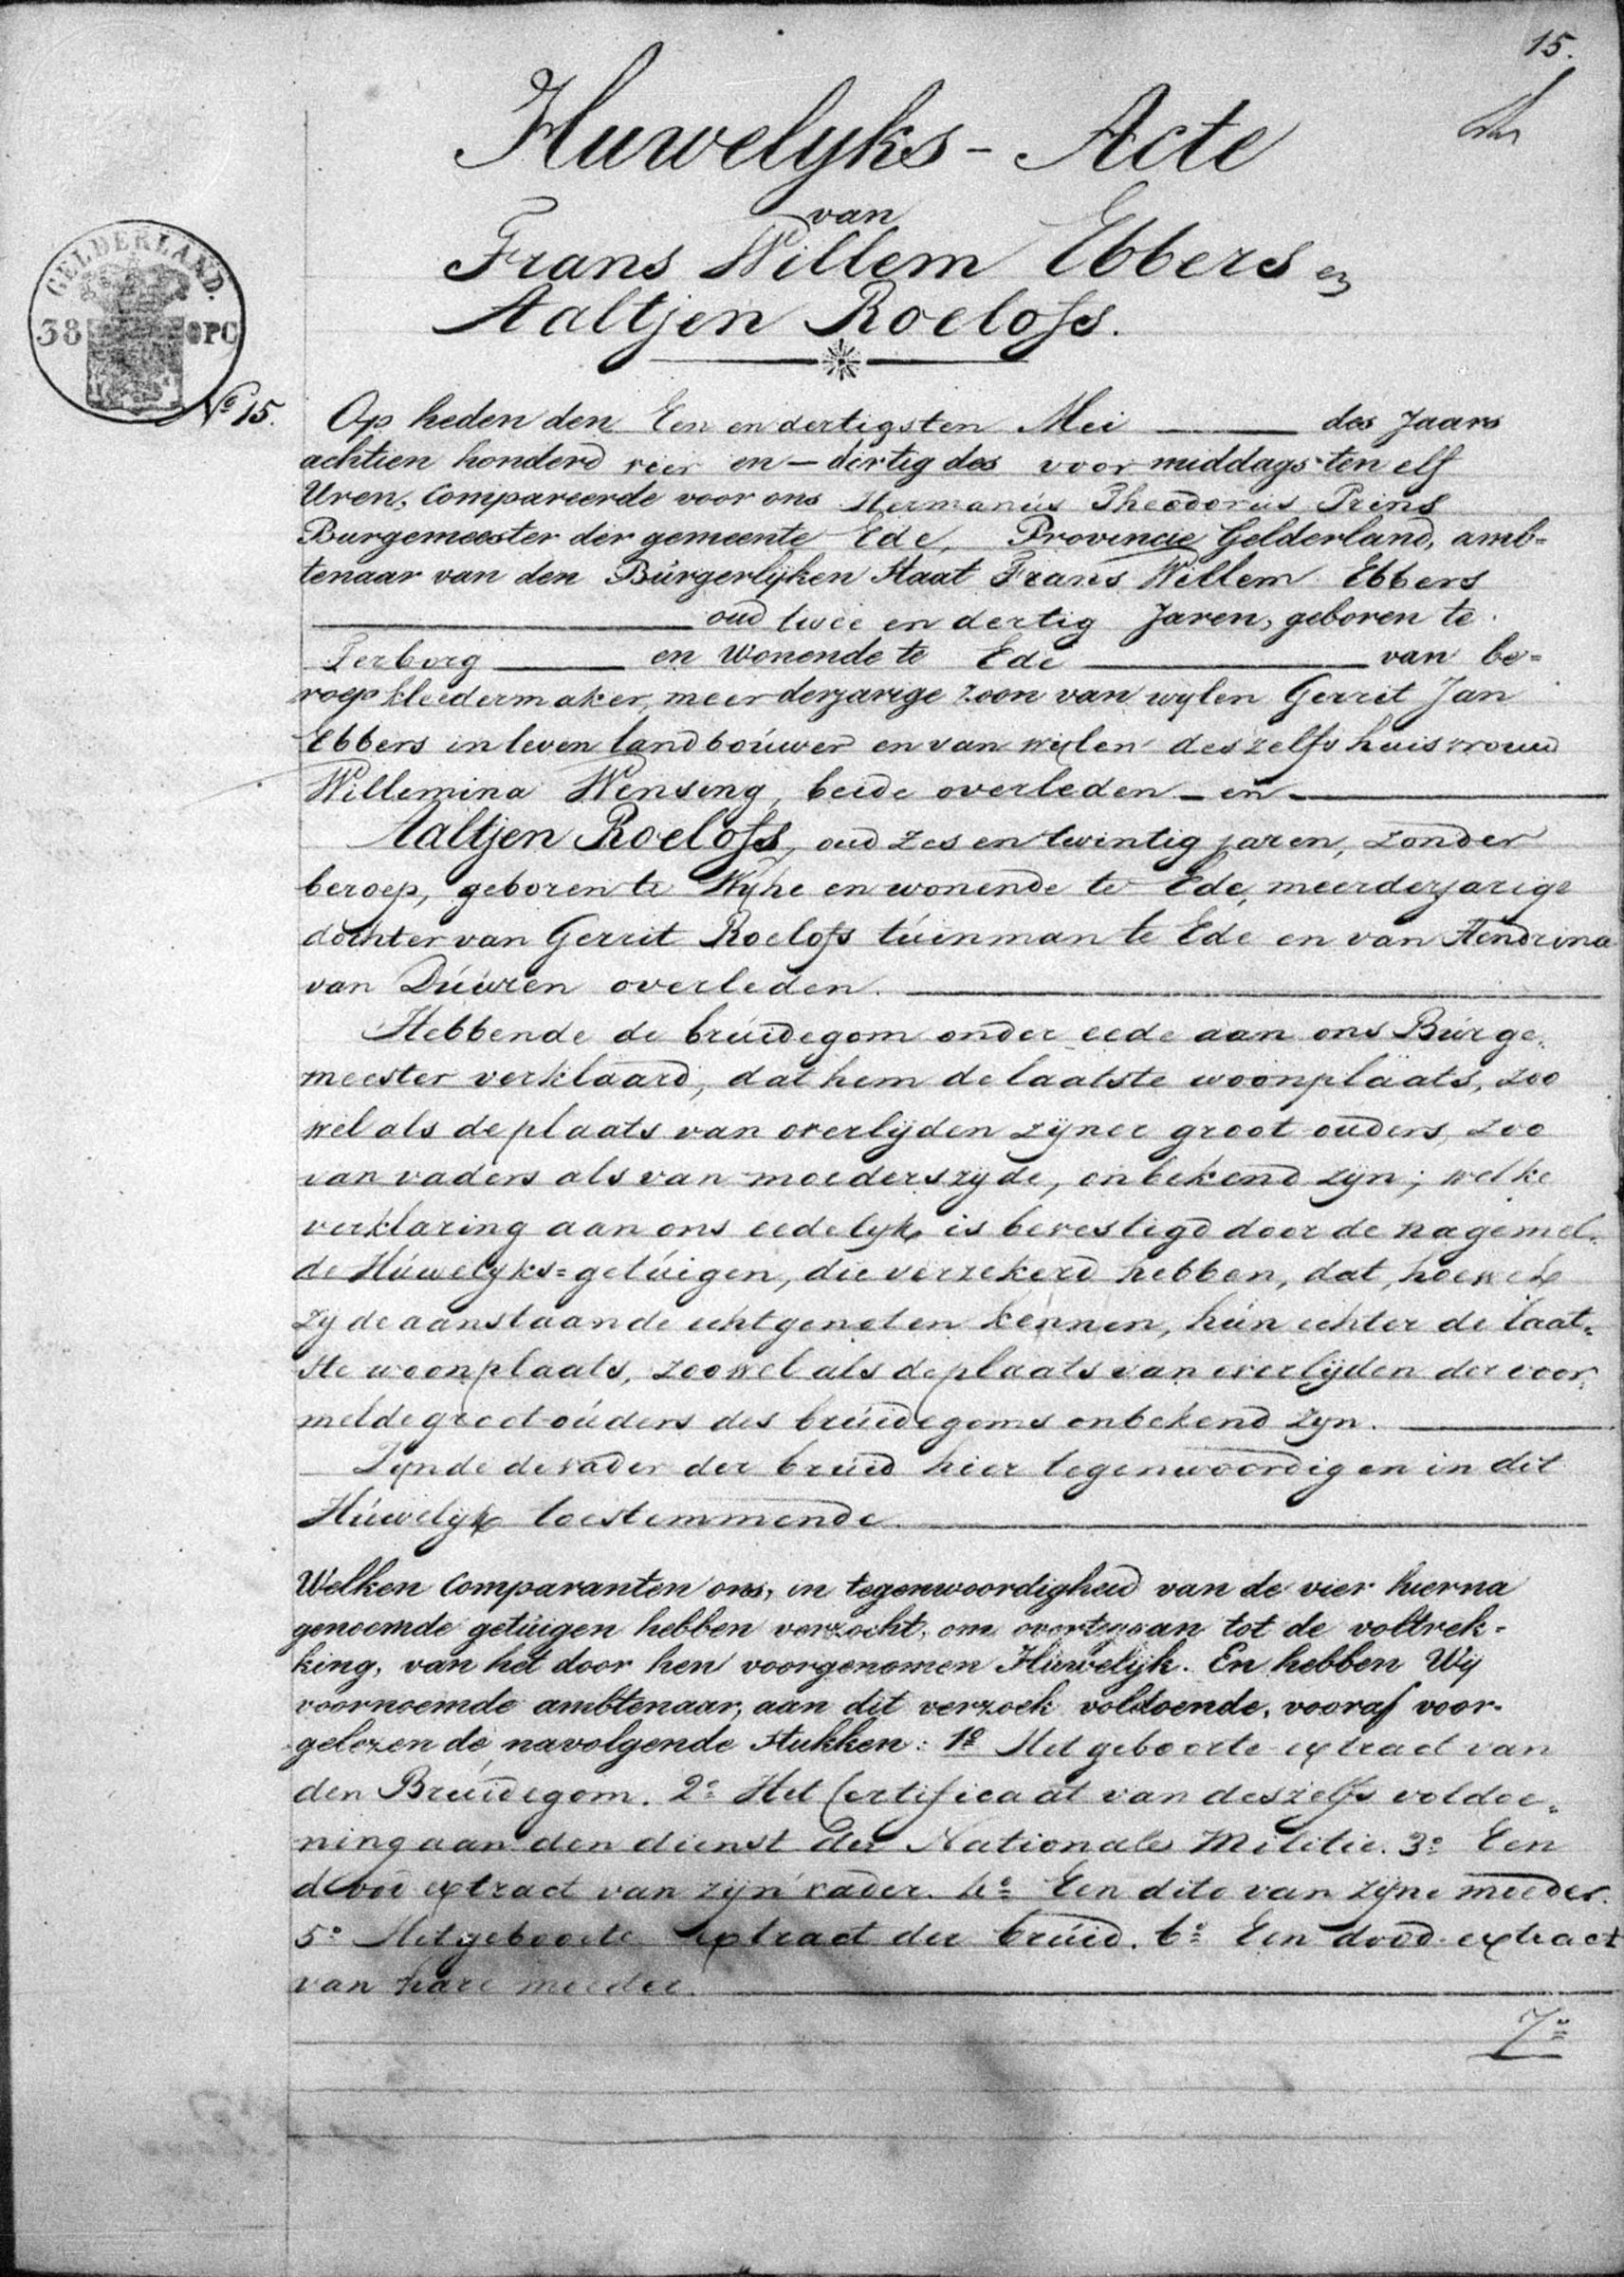 15.
Huwelyks - Acte
van
Frans Willem Ebbers en
Aaltjen Roelofs.
GELDERLAND.
38 OPC
No 15.
Op heden den Een en dertigsten Mei des Jaars
achtien honderd vier en - dertig des voor middags ten elf
Uren, Compareerde voor ons Hermanus Theodorus Prins
Burgemeester der gemeente Ede, Provincie Gelderland, amb=
tenaar van den Burgerlijken Staat Frans Willem Ebbers
oud twee en dertig Jaren, geboren te
Terborg en Wonende te Ede van be=
roep kleedermaker, meerderjarige zoon van wylen Gerrit Jan
Ebbers in leven landbouwer en van wylen deszelfs huisvrouw
Willemina Wensing, beide overleden - en -
Aaltjen Roelofs, oud zes en twintig jaren, zonder
beroep, geboren te Wyhe en wonende te Ede, meerderjarige
dochter van Gerrit Roelofs tuinman te Ede en van Hendrina
van Duuren overleden.
Hebbende de bruidegom onder eede aan ons Burge„
meester verklaard, dat hem de laatste woonplaats, zoo
wel als de plaats van overlijden zijner groot ouders, zoo
van vaders als van moederszyde, onbekend zyn; welke
verklaring aan ons eedelyk is bevestigd door de nagemel„
de Huwelyks=getuigen, die verzekerd hebben, dat, hoewel
zy de aanstaande echtgenoten kennen, hun echter de laat„
ste woonplaats, zoowel als de plaats van overlijden der voor„
melde groot-ouders des bruidegoms onbekend zyn.
Zynde de vader der bruid hier tegenwoordig en in dit
Huwelyk toestemmende.
Welken Comparanten ons, in tegenwoordigheid van de vier hierna
genoemde getuigen hebben verzocht, om overtegaan tot de voltrek-
king, van het door hen voorgenomen Huwelijk. En hebben Wij
voornoemde ambtenaar, aan dit verzoek voldoende, vooraf voor-
gelezen de navolgende Stukken: 1o Het geboorte extract van
den Bruidegom. 2o Het Certificaat van deszelfs voldoe„
ning aan den dienst der Nationale Militie. 3o Een
dood extract van zijn vader. 4o Een dito van zijne moeder.
5o Het geboorte extract der bruid. 6o Een dood-extract
van hare moeder.
7o